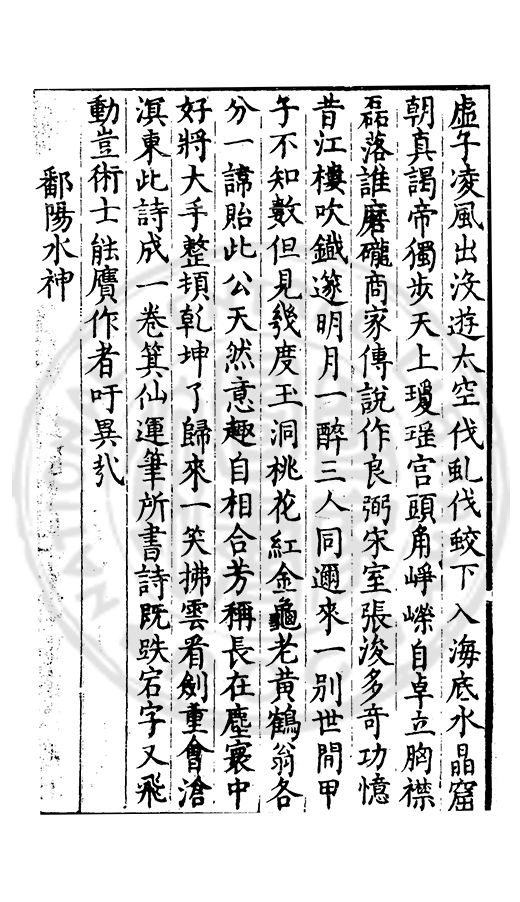 虛子凌風出沒遊太空伐虬伐蛟下入海底水晶窟
朝真謁帝獨步天上瓊瑶宫頭角崢嶸自卓立胸襟
磊落誰磨礲商家傳說作良弼宋室張浚多奇功憶
昔江樓吹鐡邃明月一醉三人同邇來一别世間甲
子不知數但見幾度玉洞桃花紅金龜老黄鶴翁各
分一諱貽此公天然意趣自相合芳稱長在塵寰中
好將大手整頓乾坤了歸來一笑拂雲看劍重會滄
溟東此詩成一卷箕仙運筆所書詩既跌宕字又飛
動豈術士能贋作者吁異㢤
鄱陽水神